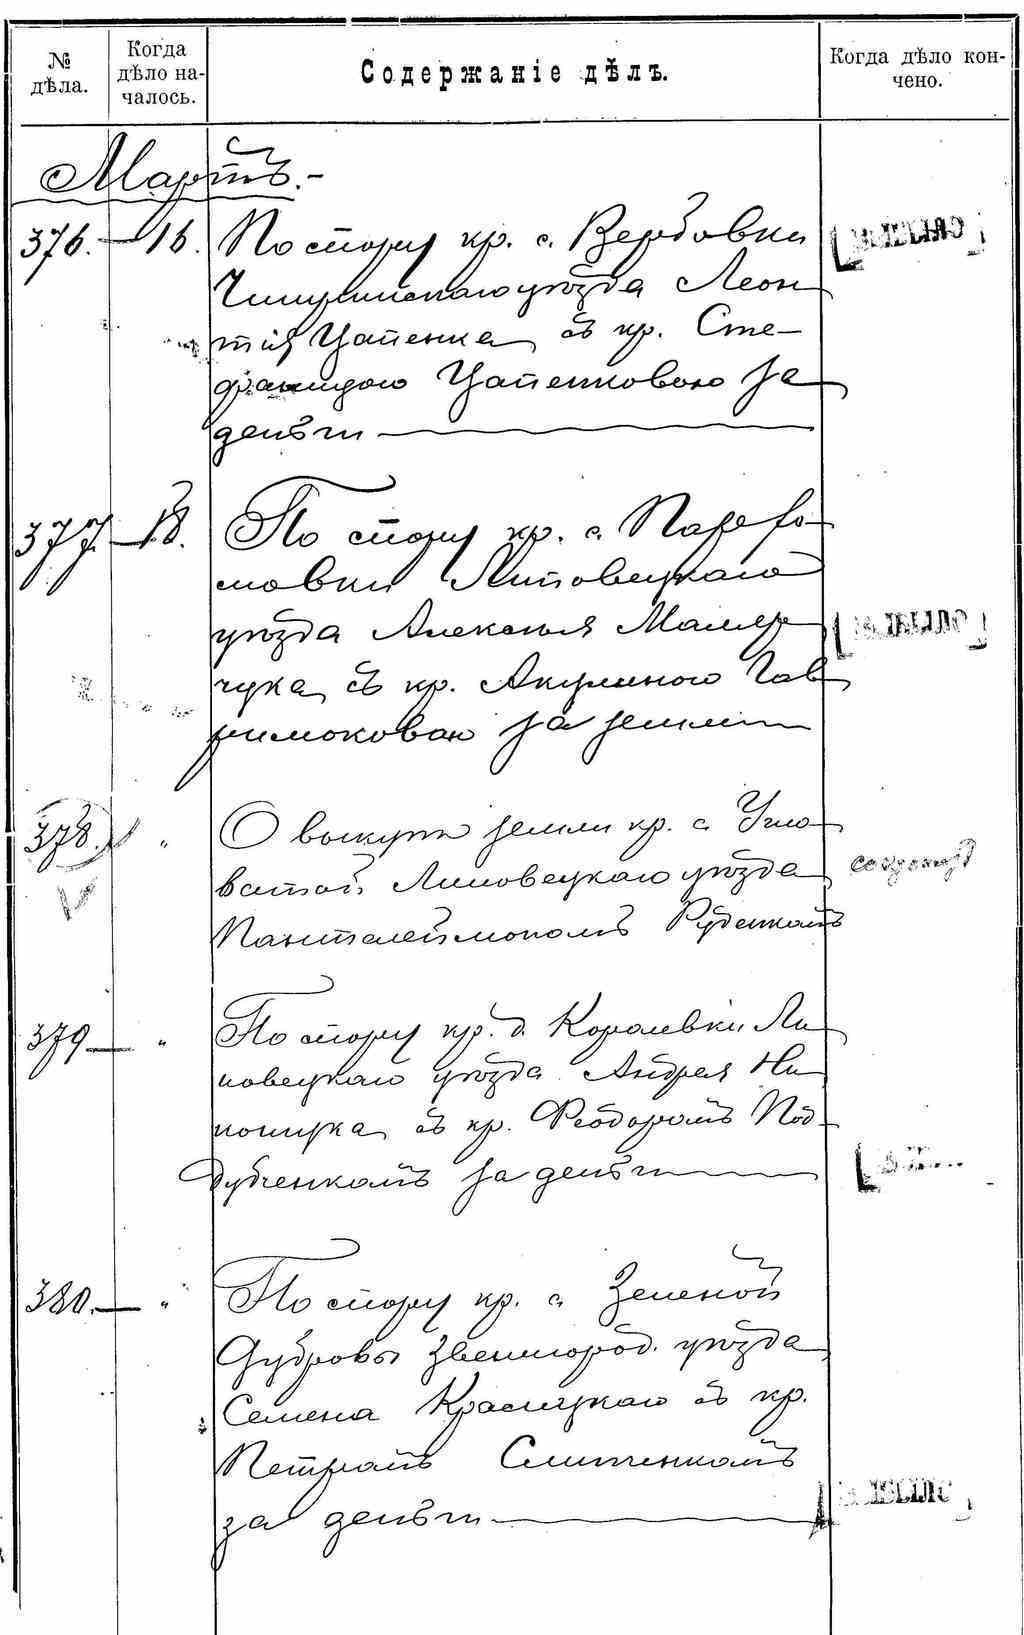 № дѣла.
Когда дѣло на-
чалось.
Содержаніе дѣлъ.
Когда дѣло кон-
чено.
Мартъ.-
376. — 16. По спору кр. с. Вербовки
Чигиринскаго уѣзда Леон
тія Цапенка съ кр. Сте-
фанидою Цапенковою за
деньги
377. — 18. По спору кр. с. Парефо-
мовки Липовецкаго
уѣзда Алексѣя
чука съ кр. Акулиною Гав
за землю
378. " О выкупѣ земли кр. с. Угло
ватой Липовецкаго уѣзда
Пантелеймономъ Руденкомъ
379 — " По спору кр. д. Королевки Ли
повецкаго уѣзда Андрея Ни
съ кр. Феодоромъ Под-
дубченкомъ за деньги
380. — " По спору кр. с. Зеленой
Дубровы Звенигород. уѣзда
Семена Красицкаго съ кр.
Петромъ
за деньги